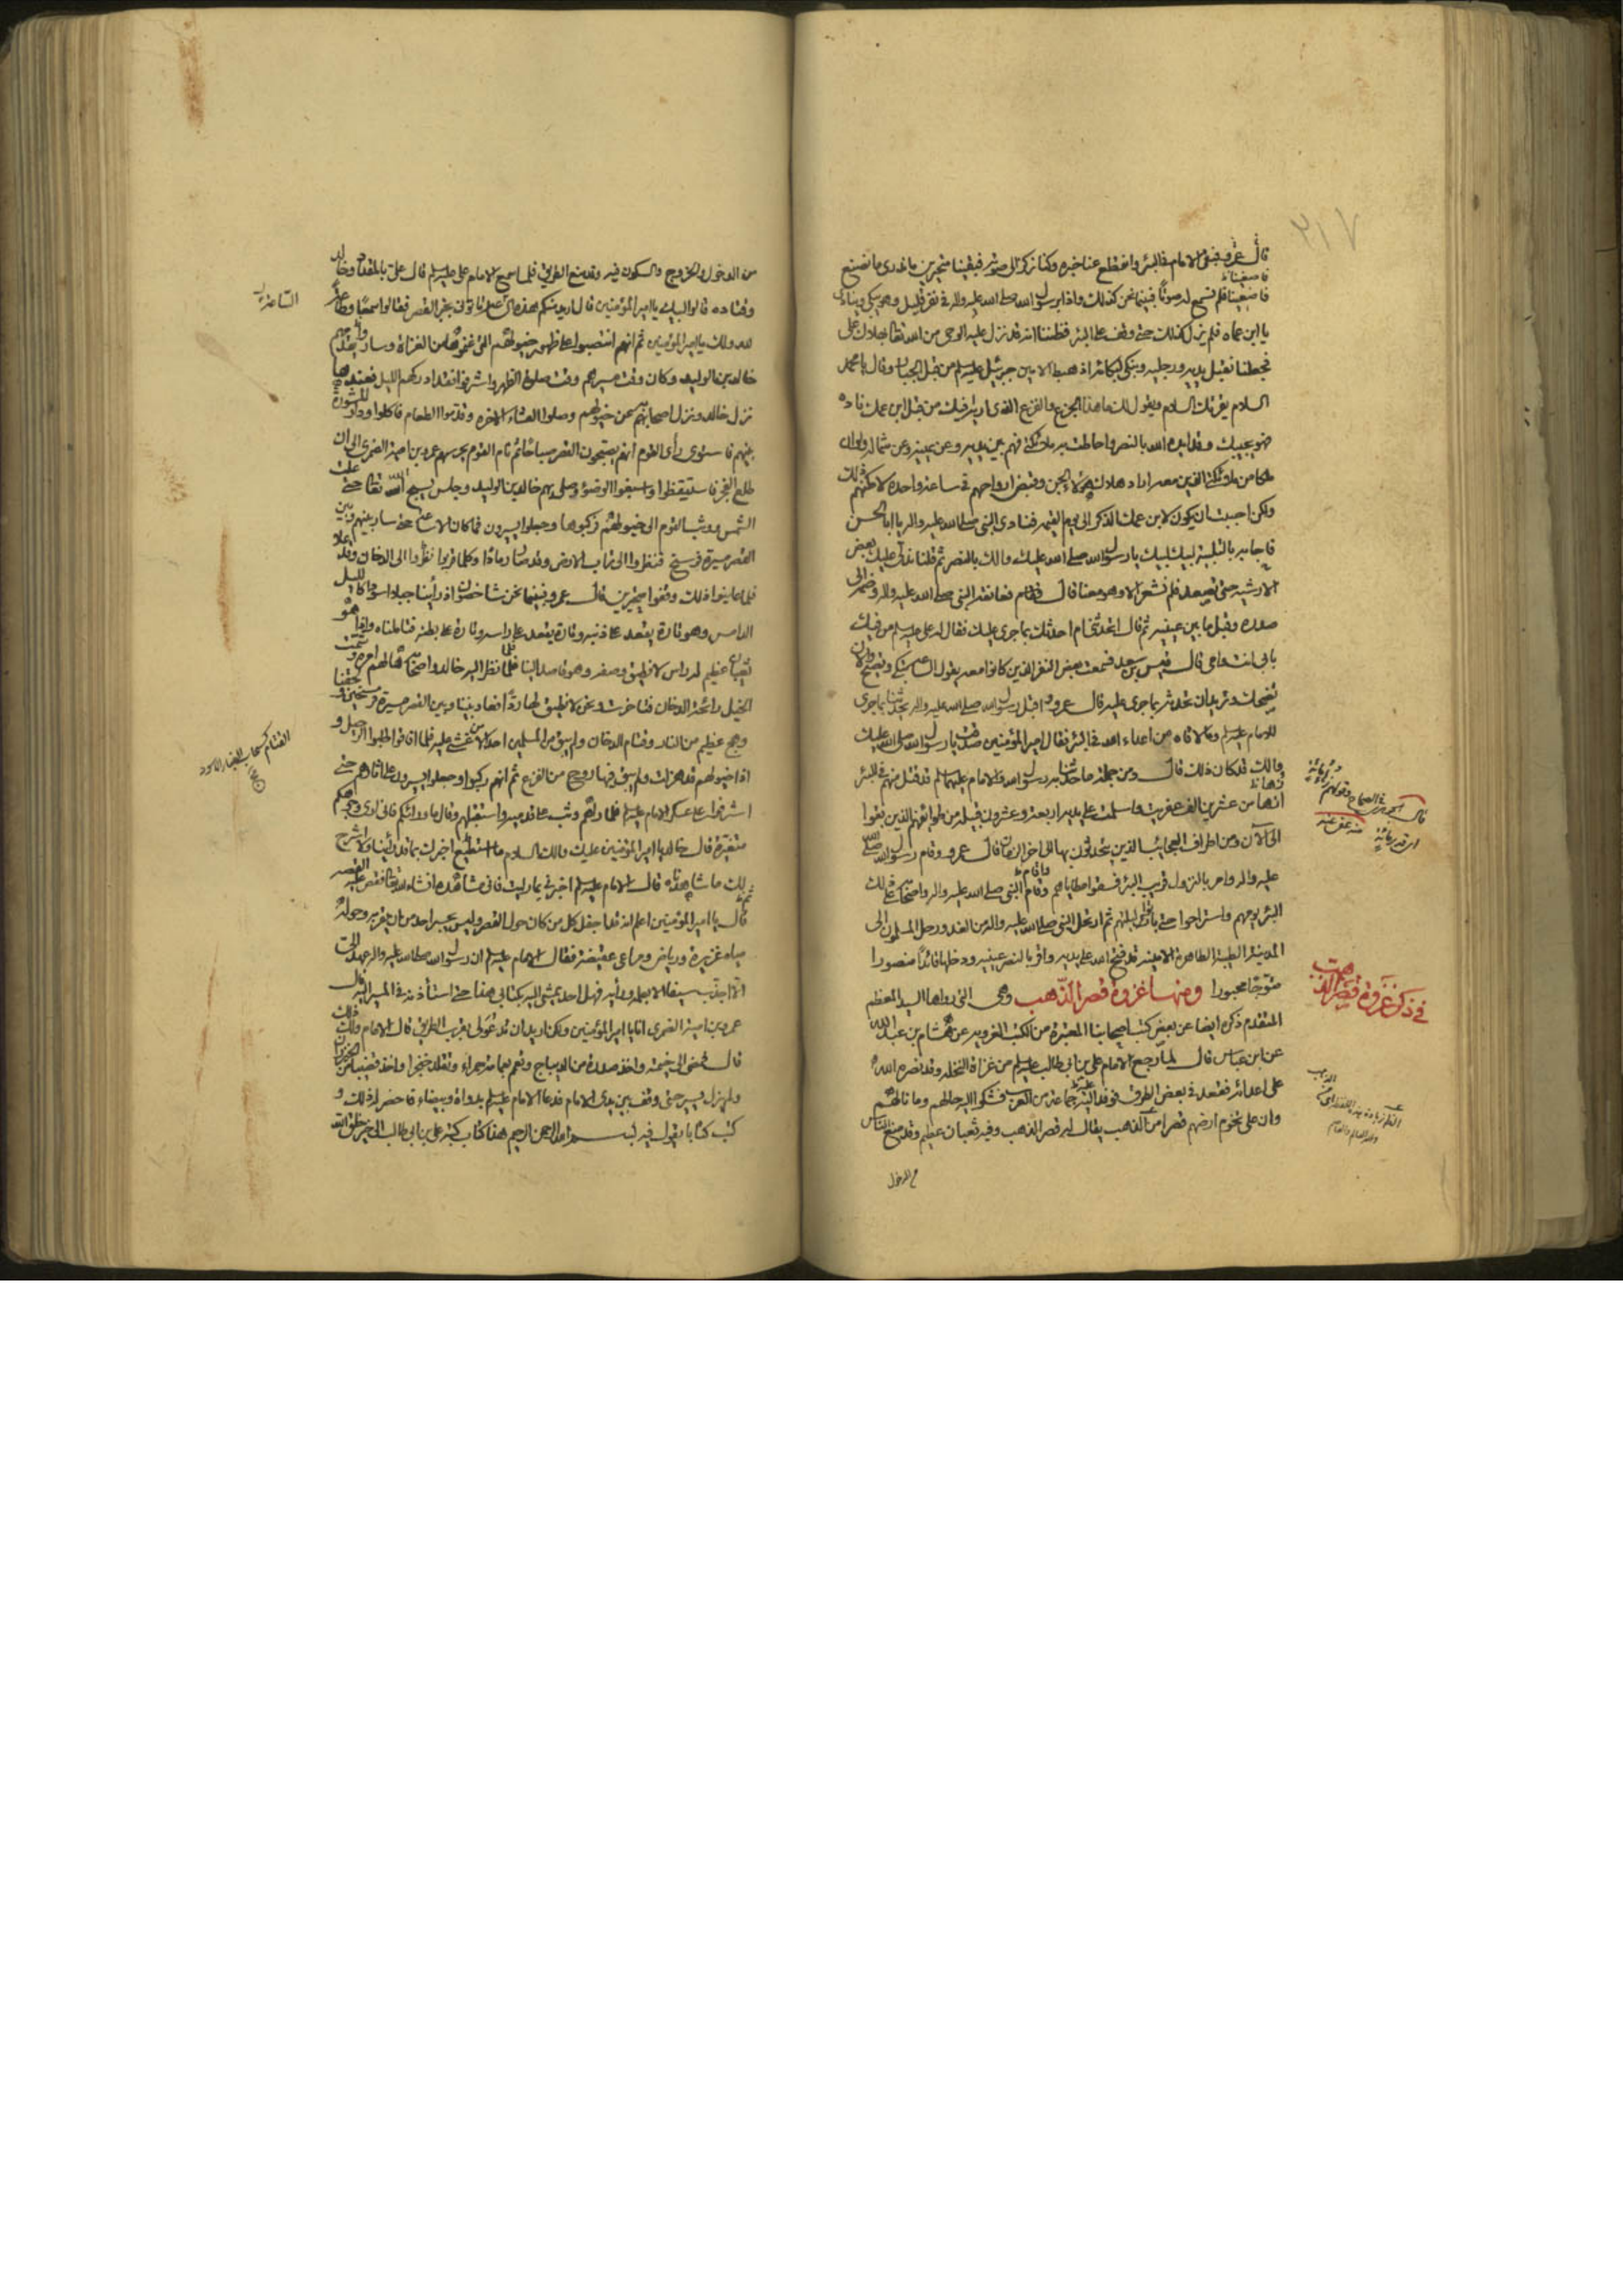 ٢١٧
قال عمرو فبقى الامام في البئر وانقطع عنا خبره وكنا نركن الى صوته فبقينا متحيرين ما ندري ما نصنع
فاصغينا فلم نسمع له صوتا فبينما نحن كذلك واذا برسول الله صلى الله عليه واله في نفر قليل وهو يبكي وينادي
يا ابن عماه فلم يزل كذلك حتى وقف على البئر فظننا انه قد نزل عليه الوحي من الله تعالى بهلاك علي
فجعلنا نقبل يديه ورجليه ونبكي لبكائه اذ هبط الامين جبرئيل عليه السلم من قبل الجبار وقال يا محمد
السلام يقرئك السلام ويقول لك ما هذا الجزع والفزع الذي اراه فيك من قبل ابن عمك ناده
فهو يجيبك وقد ايده الله بالنصر واحاطت به ملائكتي فهم بين يديه وعن يمينه وعن شماله ولو ان
ملكا من ملائكتي الذين معه اراد هلاك هؤلاء الجن وقبض ارواحهم في ساعة واحدة لامكنهم ذلك
ولكن احببت ان يكون لابن عمك الذكر الى يوم القيمة فنادى النبي صلى الله عليه واله يا ابا الحسن
فاجابه بالتلبية لبيك لبيك يا رسول الله صلى الله عليك والك بالنصر ثم قلنا ندلى عليك بعض
الارشية حتى تصعد فلم نشعر الا وهو معنا قال فقام فعانقه النبي صلى الله عليه واله وضمه الى
صدره وقبل ما بين عينيه ثم قال اتحدثني ام احدثك بما جرى عليك فقال له علي عليه السلم من فيك
بابي انت وامي قال قيس بن سعد فسمعت بعض النفر الذين كانوا معه يقول الساعة يبكي ويصيح والان
يضحك ويريد ان يحدثه بما جرى عليه قال عمرو واقبل رسول الله صلى الله عليه واله يحدثنا بما جرى
للامام عليه السلم وما لاقاه من اعداء الله في البئر فقال امير المؤمنين صدقت يا رسول الله صلى الله عليك
والك قد كان ذلك قال ومن جملة ما حدثنا به رسول الله والامام عليهما السلم قد قتل منهم في البئر
زهاء من عشرين الف عفريت واسلمت على يديه اربعة وعشرون قبيلة من طوائفهم الذين بقوا
الى الآن ومن اطراف العجائب الذين يتحدثون بها الى اخر الزمان قال عمرو وقام رسول الله صلى الله
عليه واله وامر بالنزول قريب البئر فسقوا مطاياهم وقام النبي صلى الله عليه واله واصحابه على ذلك
البئر يومهم واستراحوا حتى باتوا ليلتهم ثم ارتحل النبي صلى الله عليه واله من الغد ورحل المسلمون الى
المدينة الطيبة الطاهرة الامينة قد فتح الله على يديه واقر بالنصر عينيه ودخلها فائزا منصورا
متوجا محبورا ومنها غزوة قصر الذهب وهي التي رواها السيد المعظم
المتقدم ذكره ايضا عن بعض كتب اصحابنا المعتبرة من الكتب الغروية عن هشام بن عبد الله
عن ابن عباس قال لما رجع الامام علي بن ابي طالب عليه السلم من غزاة النخلة وقد نصره الله
على اعدائه فقعد في بعض الطرق فوفد اليه جماعة من العرب فشكوا اليه حالهم وما نالهم
وان على تخوم ارضهم قصرا من الذهب يقال له قصر الذهب وفيه ثعبان عظيم وقد منع الناس
من الدخول
في ذكر غزوة قصر الذهب
من الدخول والخروج والسكون فيه وقد منع الطريق فلما سمع الامام علي عليه السلم قال علي بالمقداد وخالد
وقتاده قالوا لبيك يا امير المؤمنين قال اريد منكم هذه الساعة تاتوني بخبر القصر فقالوا سمعا وطاعة
لله ولك يا امير المؤمنين ثم انهم انتصبوا على ظهور خيولهم التي غنموها من الغزاة وسار يقدمهم
خالد بن الوليد وكان وقت مسيرهم وقت صلوة الظهر واشرفوا فقد ادركهم الليل فعندها
نزل خالد ونزل اصحابه عن خيولهم وصلوا العشاء الاخرة وقدموا الطعام فاكلوا وداروا المشورة
بينهم فاستوى رأي القوم انهم يصبحون القصر صباحا ثم نام القوم يحرسهم عمرو بن امية الضمري الى ان
طلع الفجر فاستيقظوا واسبغوا الوضوء وصلى بهم خالد بن الوليد وجلس يسبح الله تعالى حتى علت
الشمس ووثب القوم الى خيولهم فركبوها وجعلوا يسيرون فما كان الا ساعة حتى صار بينهم وبين
القصر مسيرة فرسخ فنظروا الى تراب الارض وقد صار رمادا وكلما قربوا نظروا الى الدخان وقد علا
فلما عاينوا ذلك وقفوا متحيرين قال عمرو فبينما نحن شاخصون اذ رأينا جبلا اسود كالليل
الدامس وهو تارة يقعد على ذنبه وتارة يقعد على راسه وتارة على بطنه فتاملناه واذا هو
ثعبان عظيم له راس لا نطيق وصفه وهو قاصد الينا فلما نظر اليه خالد واصحابه هالهم امره وشمت
الخيل رائحة الدخان فتاخرت ونحن لا نطيق لها ردا فصار بيننا وبين القصر مسيرة فرسخين ولحقنا
وهج عظيم من النار وقتام الدخان ولم يبق من المسلمين احد الا من غشي عليه فلما افاقوا طلبوا الرحيل و
اذا خيولهم قد هزلت ولم يبق فيها روح من الفزع ثم انهم ركبوا وجعلوا يسيرون على اثارهم حتى
اشرفوا على عسكر الامام عليه السلم فلما راهم وثب على قدميه واستقبلهم وقال ما ورائكم فاني ارى وجوهكم
متغيرة قال خالد يا امير المؤمنين عليك والك السلام ما استطيع اخبرك بما قد رأينا ولا اشرح
لك ما شاهدناه قال الامام عليه السلم اخبرني بما رايت فاني مشاهده انشاء الله تعالى فقص عليه القصة
ثم قال يا امير المؤمنين اعلم انه قد اجفل كل من كان حول القصر وليس يجسر احد من ان يقربه وحوله
مياه غزيرة ورياض ومراعي عفيضة فقال الامام عليه السلم ان رسول الله صلى الله عليه واله عهد الي
اني لا اجذب سيفا الا بعلمه ورأيه فهل احد يمشي اليه بكتابي هذا حتى استأذنه في المسير اليه قال
عمرو بن امية الضمري انا يا امير المؤمنين ولكن اريد ان تدعو لي بقرب الطريق قال الامام ولك ذلك
قال فمضى الى خيمته واخذ صدرة من الديباج وتعمم بعمامة حمراء وتقلد خنجرا واخذ قضيبا من الخيزران
ولم يزل يسير حتى وقف بين يدي الامام فدعا الامام عليه السلم بدواة وبيضاء فاحضر له ذلك و
كتب كتابا يقول فيه بسم الله الرحمن الرحيم هذا كتاب كتبه علي بن ابي طالب الى خير خلق الله
الساعة
القتام كسحاب الغبار الاسود